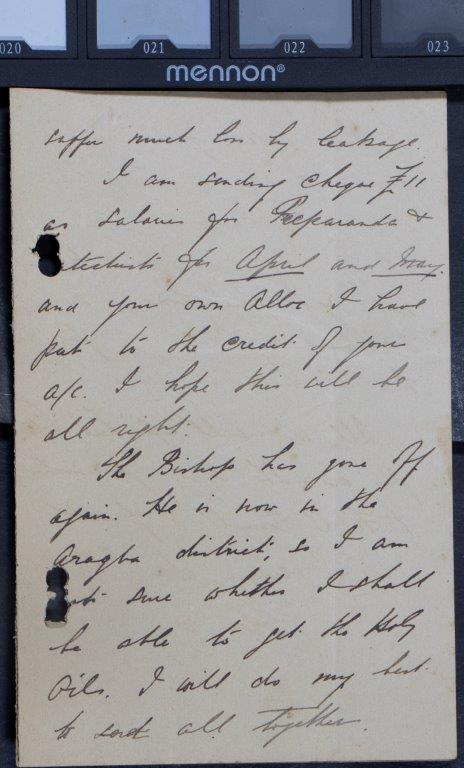 020 021 022 023
mennon®
suffer much loss by leakage.
I am sending cheque £11
as salaries for Preparanda &
atechists for April and May.
and your own Alloc I have
put to the credit of your
a/c. I hope this will be
all right.
The Bishop has gone off
again. He is now in the
Aragba district, so I am
not sure whether I shall
be able to get the Holy
Oils. I will do my best
to send all together.